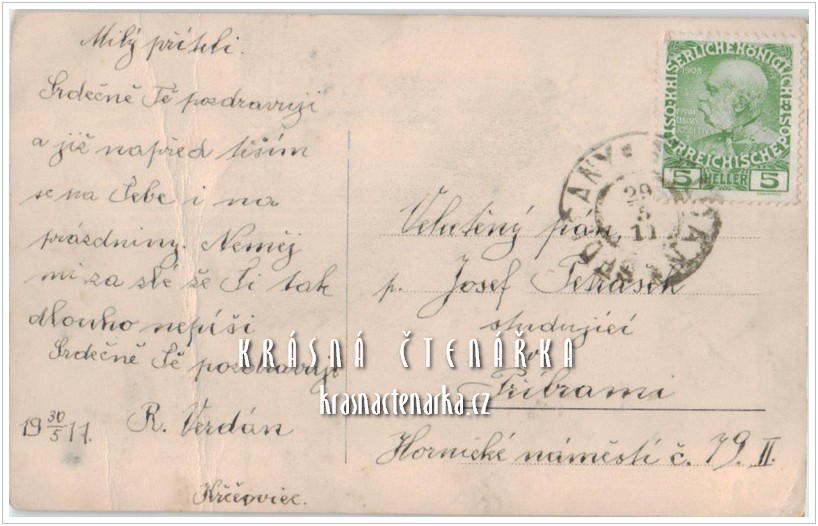 Milý příteli.
Srdečně Tě pozdravuji
a již napřed těším
se na Tebe i na
prázdniny. Neměj
mi za zlé že Ti tak
dlouho nepíši
Srdečně Tě pozdravuje
19 30/5 11. R. Verdán
KAISERLICHE KÖNIGLICHE ÖSTERREICHISCHE POST
1908
5 HELLER 5
SEDLČANY
29
5
11
Velectěný pan
p. Josef Petrásek
studující
v
Příbrami
Hornické náměstí č. 79. II.
KRÁSNÁ ČTENÁŘKA
krasnactenarka.cz